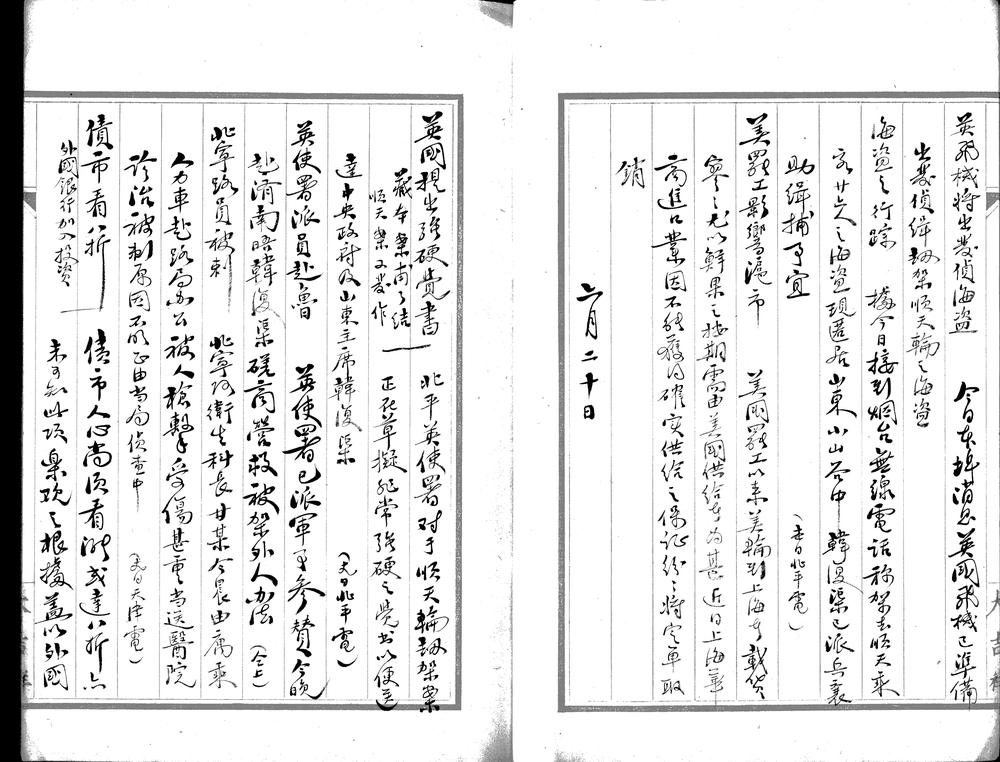 英飛機將出發偵海盜　今日本埠消息英國飛機已準備
出發偵緝刼架順天輪之海盜
海盜之行踪　據今日接到烟台無線電話称架去順天乘
客廿六人之海盜現匿居山東小山谷中韓復渠已派兵襄
助緝捕事宜　（本日北平電）
美罷工影響滬市　美國罷工以来美輪到上海者載貨
寥寥尤以鮮果之按期需由美國供給者為甚近日上海華
商進口業因不能獲得確实供給之保証紛紛將定单取
銷
六月二十日
英國提出強硬覺書　北平英使署对于順天輪刼架案
藏本案甫了結
順天案又發作
正在草擬非常強硬之覺书以便送
達中央政府及山東主席韓復渠　（本日北平電）
英使署派員赴魯　英使署已派軍事参賛今晚
赴濟南晤韓復渠磋商营救被架外人办法　（仝上）
北寧路員被刺　北寧路衛生科長甘某今晨由寓乘
人力車赴路局办公被人槍擊受傷甚重当送醫院
診治被刺原因不明正由当局偵查中　（本日天津電）
債市看八折　債市人心尚須看漲或達八折亦
外國銀行加入投資
未可知此項樂观之根據盖以外國